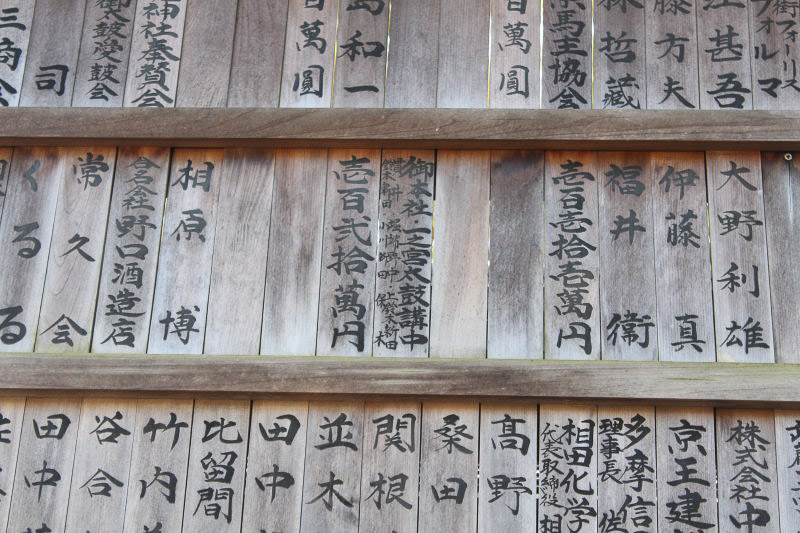 街フォーリス
フォルマ
江甚吾
藤方夫
林哲藏
馬主協会
百萬圓
島和一
百萬圓
神社奏賛会
太鼓受鼓会
司
三商会
大野利雄
伊藤真
福井衛
壱百壱拾壱萬円
御本社一之宮太鼓講中
壱百弐拾萬円
相原博
合名会社野口酒造店
常久会
くるる
株式会社中
京王建
多摩信
理事長 佐
相田化学
代表取締役 相
髙野
桑田
関根
並木
田中
比留間
竹内
谷合
田中